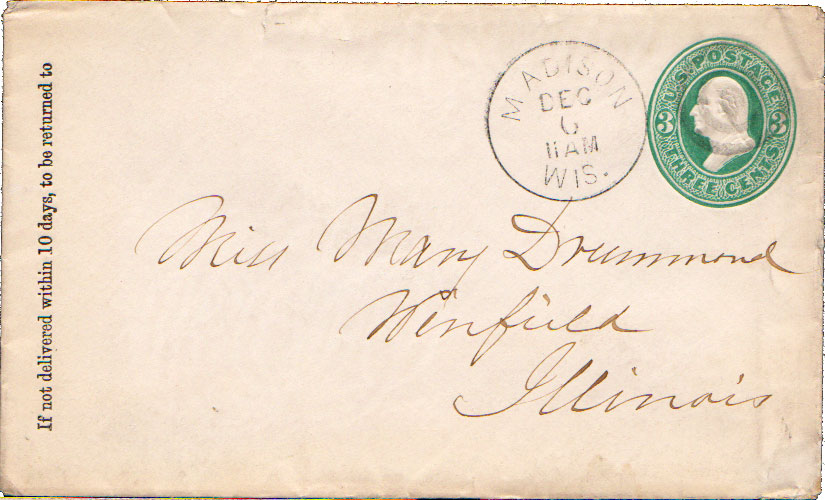 If not delivered within 10 days, to be returned to
MADISON
DEC
6
11 AM
WIS.
U.S. POSTAGE
3 3
THREE CENTS
Miss Mary Drummond
Winfield
Illinois